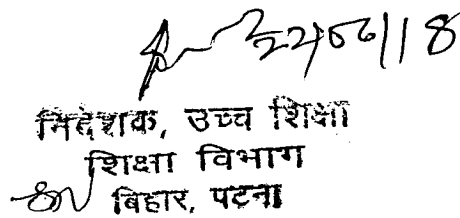 22/06/18
निदेशक, उच्च शिक्षा
शिक्षा विभाग
बिहार, पटना